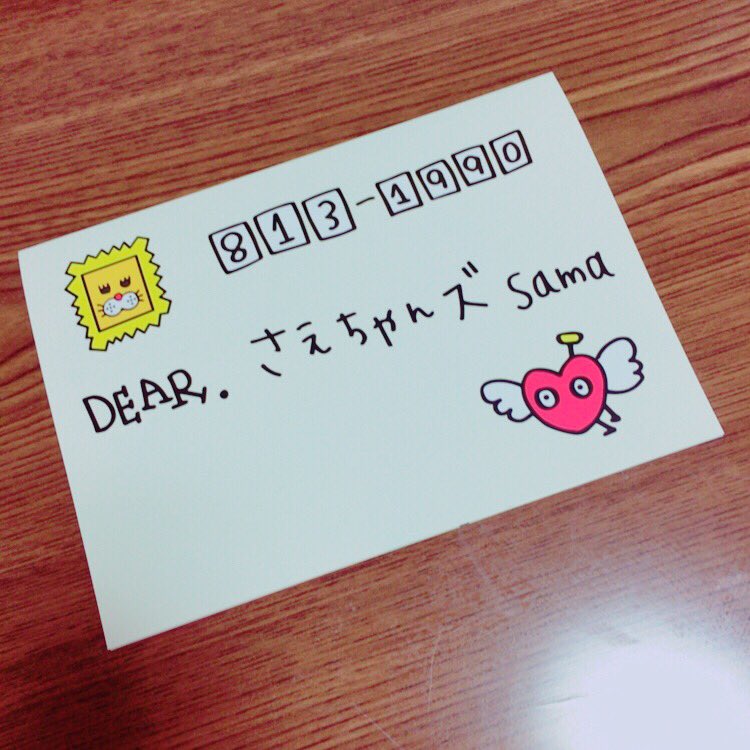 813-1990
DEAR. さえちゃんズ sama